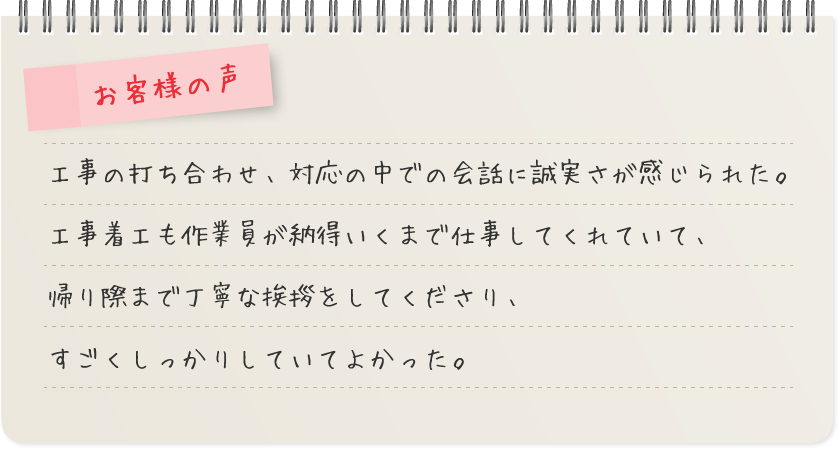 お客様の声
工事の打ち合わせ、対応の中での会話に誠実さが感じられた。
工事着工も作業員が納得いくまで仕事してくれていて、
帰り際まで丁寧な挨拶をしてくださり、
すごくしっかりしていてよかった。